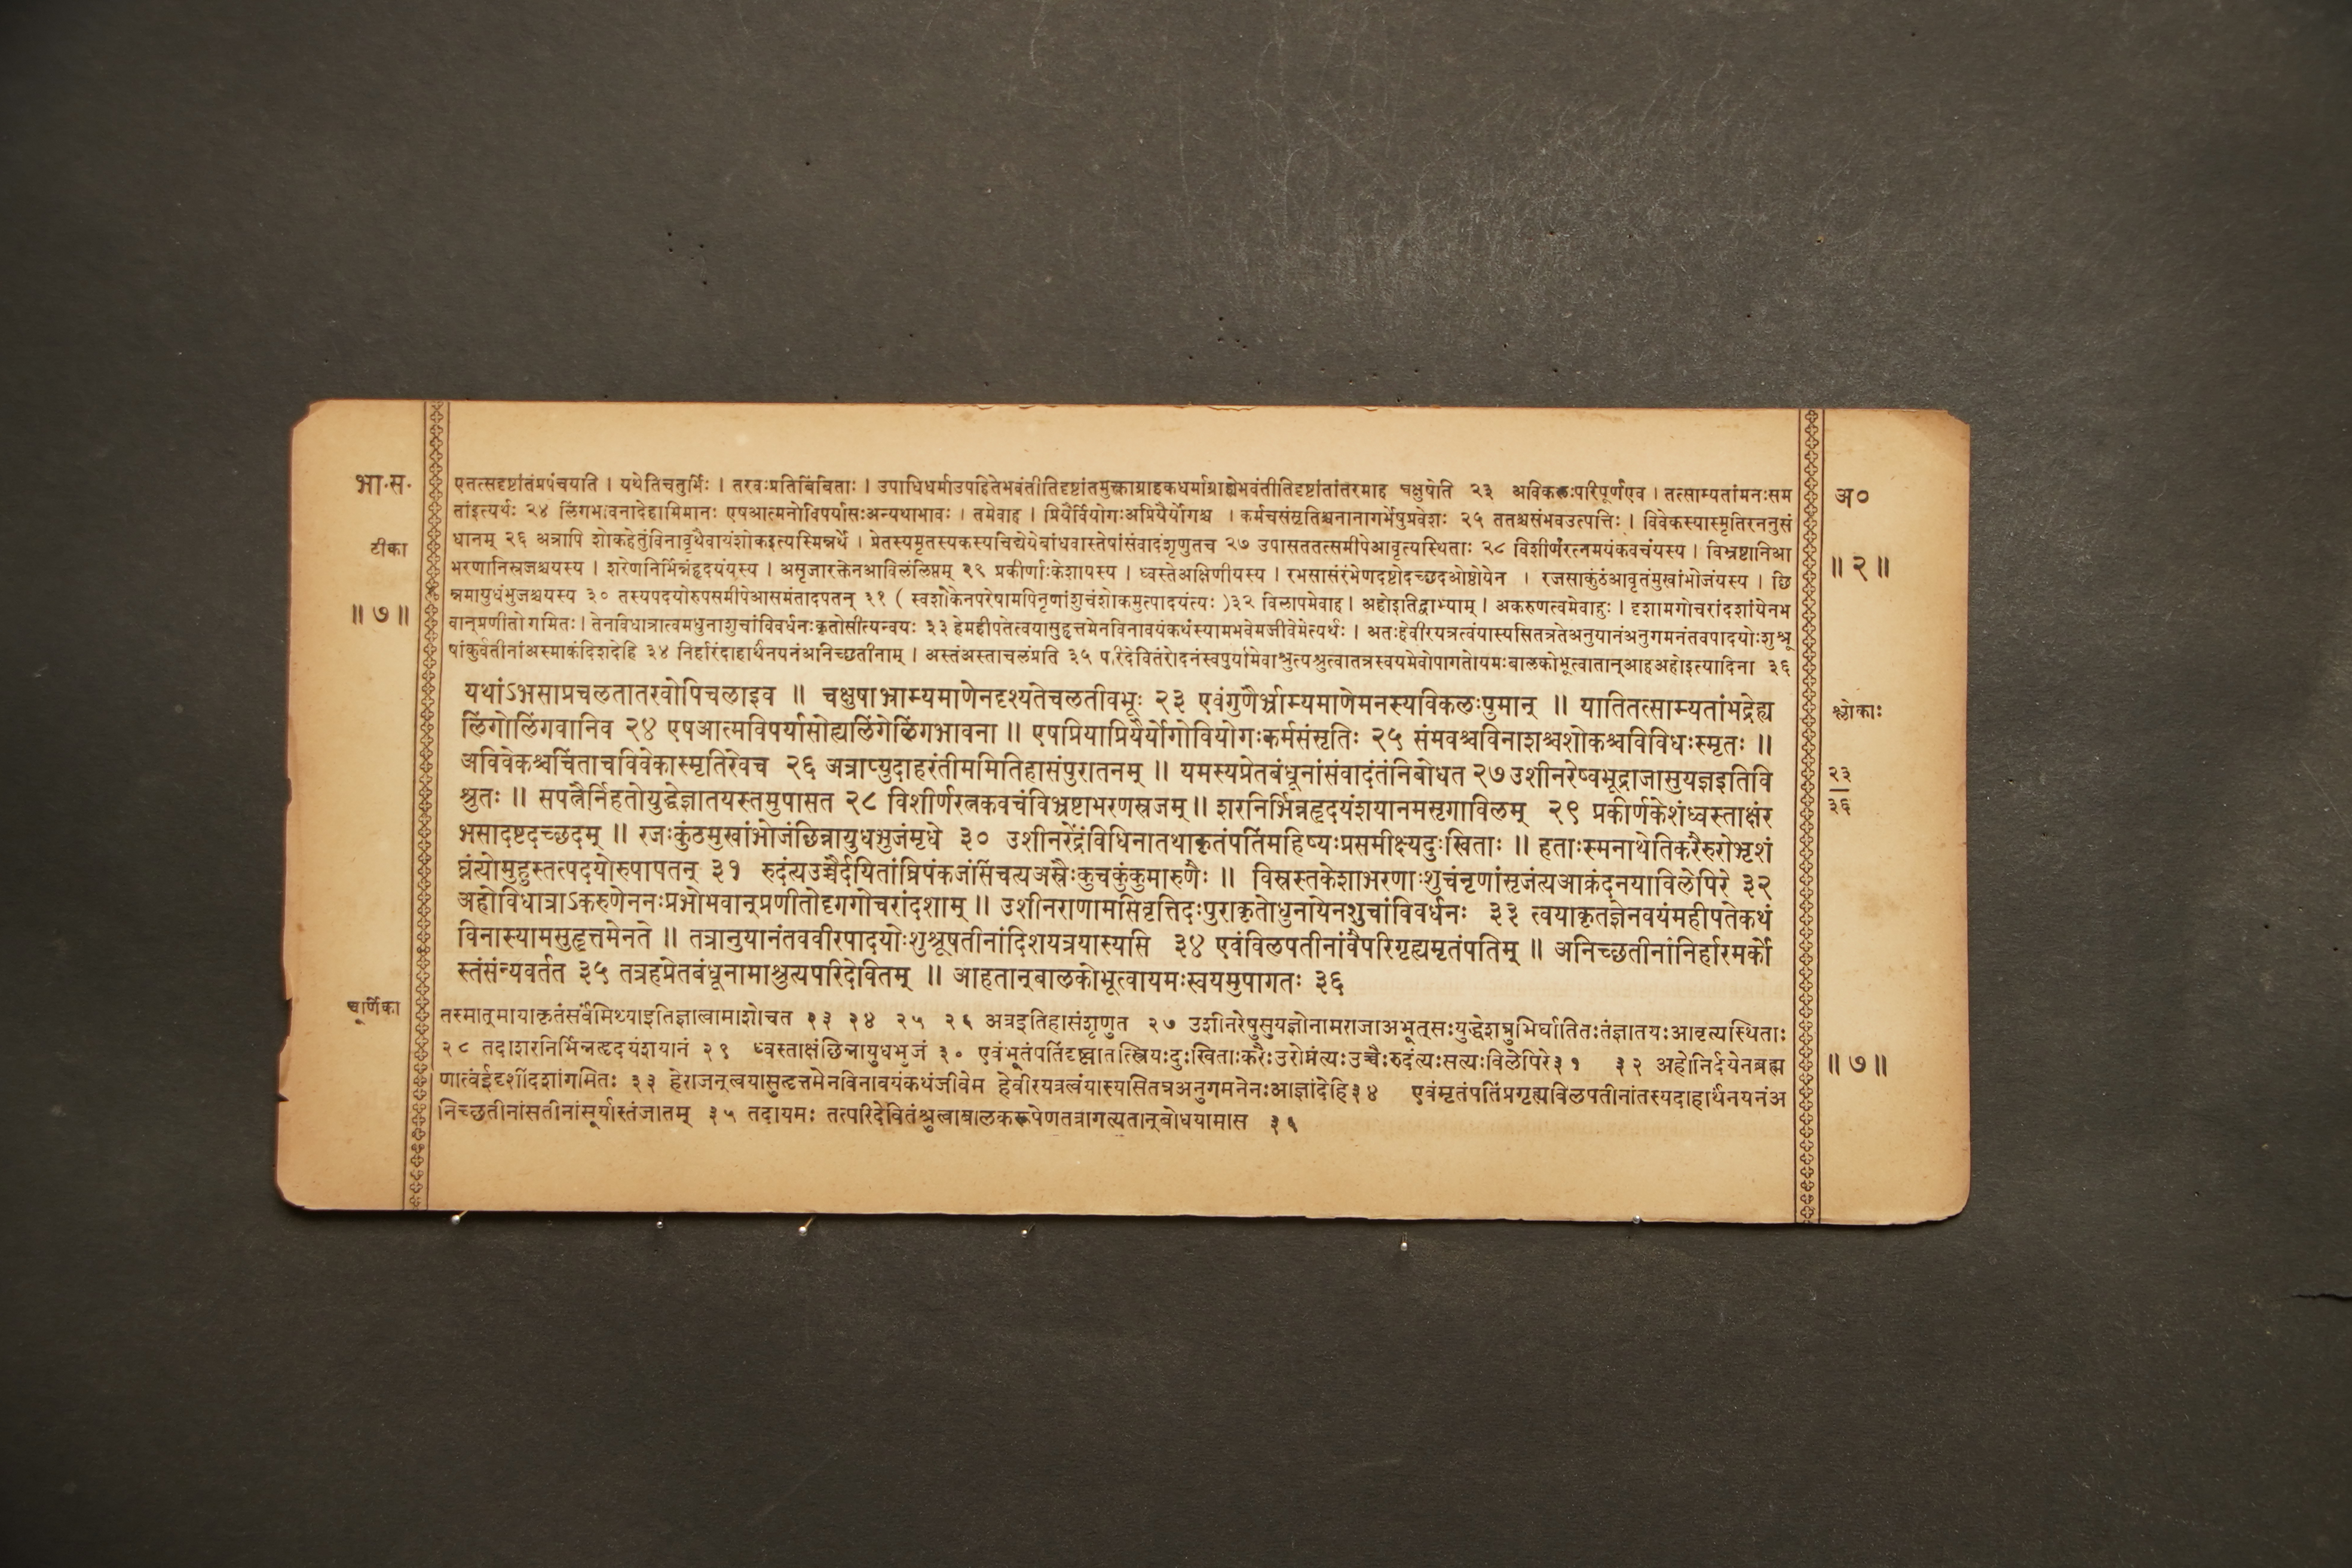 भा.स.
एतत्सदृष्टांतंप्रपंचयति । यथेतिचतुर्भिः । तरवःप्रतिबिंबिताः । उपाधिधर्माउपहितेभवंतीतिदृष्टांतमुक्त्वाग्राहकधर्माग्राह्येभवंतीतिदृष्टांतांतरमाह चक्षुषेति २३ अविकलःपरिपूर्णएव । तत्साम्यतांमनःसम
तांइत्यर्थः २४ लिंगभावनादेहाभिमानः एषआत्मनोविपर्यासःअन्यथाभावः । तमेवाह । प्रियैर्वियोगःअप्रियैर्योगश्च । कर्मचसंसृतिश्चनानागर्भेषुप्रवेशः २५ ततश्चसंभवउत्पत्तिः । विवेकस्यास्मृतिरननुसं
टीका
धानम् २६ अत्रापि शोकहेतुंविनावृथैवायंशोकइत्यस्मिन्नर्थे । प्रेतस्यमृतस्यकस्यचिद्येयेबांधवास्तेषांसंवादंशृणुतच २७ उपासततत्समीपेआवृत्यस्थिताः २८ विशीर्णंरत्नमयंकवचंयस्य । विभ्रष्टानिआ
भरणानिस्रजश्चयस्य । शरेणनिर्भिन्नंहृदयंयस्य । असृजारक्तेनआविलंलिप्तम् २९ प्रकीर्णाःकेशायस्य । ध्वस्तेअक्षिणीयस्य । रभसासंरंभेणदष्टोदच्छदओष्ठोयेन । रजसाकुंठंआवृतंमुखांभोजंयस्य । छि
॥ ७ ॥
न्नमायुधंभुजश्चयस्य ३० तस्यपदयोरुपसमीपेआसमंतादपतन् ३१ ( स्वशोकेनपरेषामपिनृणांशुचंशोकमुत्पादयंत्यः )३२ विलापमेवाह । अहोइतिद्वाभ्याम् । अकरुणत्वमेवाहुः । दृशामगोचरांदशांयेनभ
वान्प्रणीतो गमितः । तेनविधात्रात्वमधुनाशुचांविवर्धनःकृतोसीत्यन्वयः ३३ हेमहीपतेत्वयासुहृत्तमेनविनावयंकथंस्यामभवेमजीवेमेत्यर्थः । अतःहेवीरयत्रत्वंयास्यसितत्रतेअनुयानंअनुगमनंतवपादयोःशुश्रू
षांकुर्वतीनांअस्माकंदिशदेहि ३४ निर्हारंदाहार्थंनयनंअनिच्छतीनाम् । अस्तंअस्ताचलंप्रति ३५ परिदेवितंरोदनंस्वपुर्यामेवाश्रुत्यश्रुत्वातत्रस्वयमेवोपागतोयमःबालकोभूत्वातान्आहअहोइत्यादिना ३६
यथांऽभसाप्रचलतातरवोपिचलाइव ॥ चक्षुषाभ्राम्यमाणेनदृश्यतेचलतीवभूः २३ एवंगुणैर्भ्राम्यमाणेमनस्यविकलःपुमान् ॥ यातितत्साम्यतांभद्रेह्य
लिंगोलिंगवानिव २४ एषआत्मविपर्यासोह्यलिंगेलिंगभावना ॥ एषप्रियाप्रियैर्योगोवियोगःकर्मसंसृतिः २५ संभवश्चविनाशश्चशोकश्चविविधःस्मृतः ॥
अविवेकश्चचिंताचविवेकास्मृतिरेवच २६ अत्राप्युदाहरंतीममितिहासंपुरातनम् ॥ यमस्यप्रेतबंधूनांसंवादंतंनिबोधत २७उशीनरेष्वभूद्राजासुयज्ञइतिवि
श्रुतः ॥ सपत्नैर्निहतोयुद्धेज्ञातयस्तमुपासत २८ विशीर्णरत्नकवचंविभ्रष्टाभरणस्रजम् ॥ शरनिर्भिन्नहृदयंशयानमसृगाविलम् २९ प्रकीर्णकेशंध्वस्ताक्षंर
भसादष्टदच्छदम् ॥ रजःकुंठमुखांभोजंछिन्नायुधभुजंमृधे ३० उशीनरेंद्रंविधिनातथाकृतंपतिंमहिष्यःप्रसमीक्ष्यदुःखिताः ॥ हताःस्मनाथेतिकरैरुरोभृशं
घ्नंत्योमुहुस्तत्पदयोरुपापतन् ३१ रुदंत्यउच्चैर्दयितांघ्रिपंकजंसिंचत्यअस्रैःकुचकुंकुमारुणैः ॥ विस्रस्तकेशाभरणाःशुचंनृणांसृजंत्यआक्रंदनयाविलेपिरे ३२
अहोविधात्राऽकरुणेननःप्रभोभवान्प्रणीतोदृगगोचरांदशाम् ॥ उशीनराणामसिवृत्तिदःपुराकृतोधुनायेनशुचांविवर्धनः ३३ त्वयाकृतज्ञेनवयंमहीपतेकथं
विनास्यामसुहृत्तमेनते ॥ तत्रानुयानंतववीरपादयोःशुश्रूषतीनांदिशयत्रयास्यसि ३४ एवंविलपतीनांवैपरिगृह्यमृतंपतिम् ॥ अनिच्छतीनांनिर्हारमर्को
स्तंसंन्यवर्तत ३५ तत्रहप्रेतबंधूनामाश्रुत्यपरिदेवितम् ॥ आहतान्बालकोभूत्वायमःस्वयमुपागतः ३६
चूर्णिका
तस्मात्मायाकृतंसर्वंमिथ्याइतिज्ञात्वामाशोचत २३ २४ २५ २६ अत्रइतिहासंशृणुत २७ उशीनरेषुसुयज्ञोनामराजाअभूत्सःयुद्धेशत्रुभिर्घातितःतंज्ञातयःआवृत्यस्थिताः
२८ तदाशरनिर्भिन्नहृदयंशयानं २९ ध्वस्ताक्षंछिन्नायुधभुजं ३० एवंभूतंपतिंदृष्ट्वातत्स्त्रियःदुःखिताःकरैःउरोघ्नंत्यःउच्चैःरुदंत्यःसत्यःविलेपिरे३१ ३२ अहोनिर्दयेनब्रह्म
णात्वंईदृशींदशांगमितः ३३ हेराजन्त्वयासुहृत्तमेनविनावयंकथंजीवेम हेवीरयत्रत्वंयास्यसितत्रअनुगमनेनःआज्ञांदेहि३४ एवंमृतंपतिंप्रगृह्यविलपतीनांतस्यदाहार्थंनयनंअ
निच्छतीनांसतीनांसूर्यास्तंजातम् ३५ तदायमः तत्परिदेवितंश्रुत्वाबालकरूपेणतत्रागत्यतान्बोधयामास ३६
अ०
॥ २ ॥
श्लोकाः
२३
३६
॥ ७ ॥